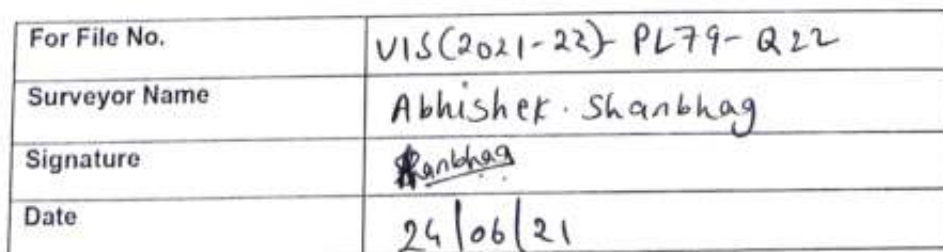 For File No. VIS(2021-22)-PL79-Q22
Surveyor Name Abhishek. Shanbhag
Signature Shanbhag
Date 24/06/21